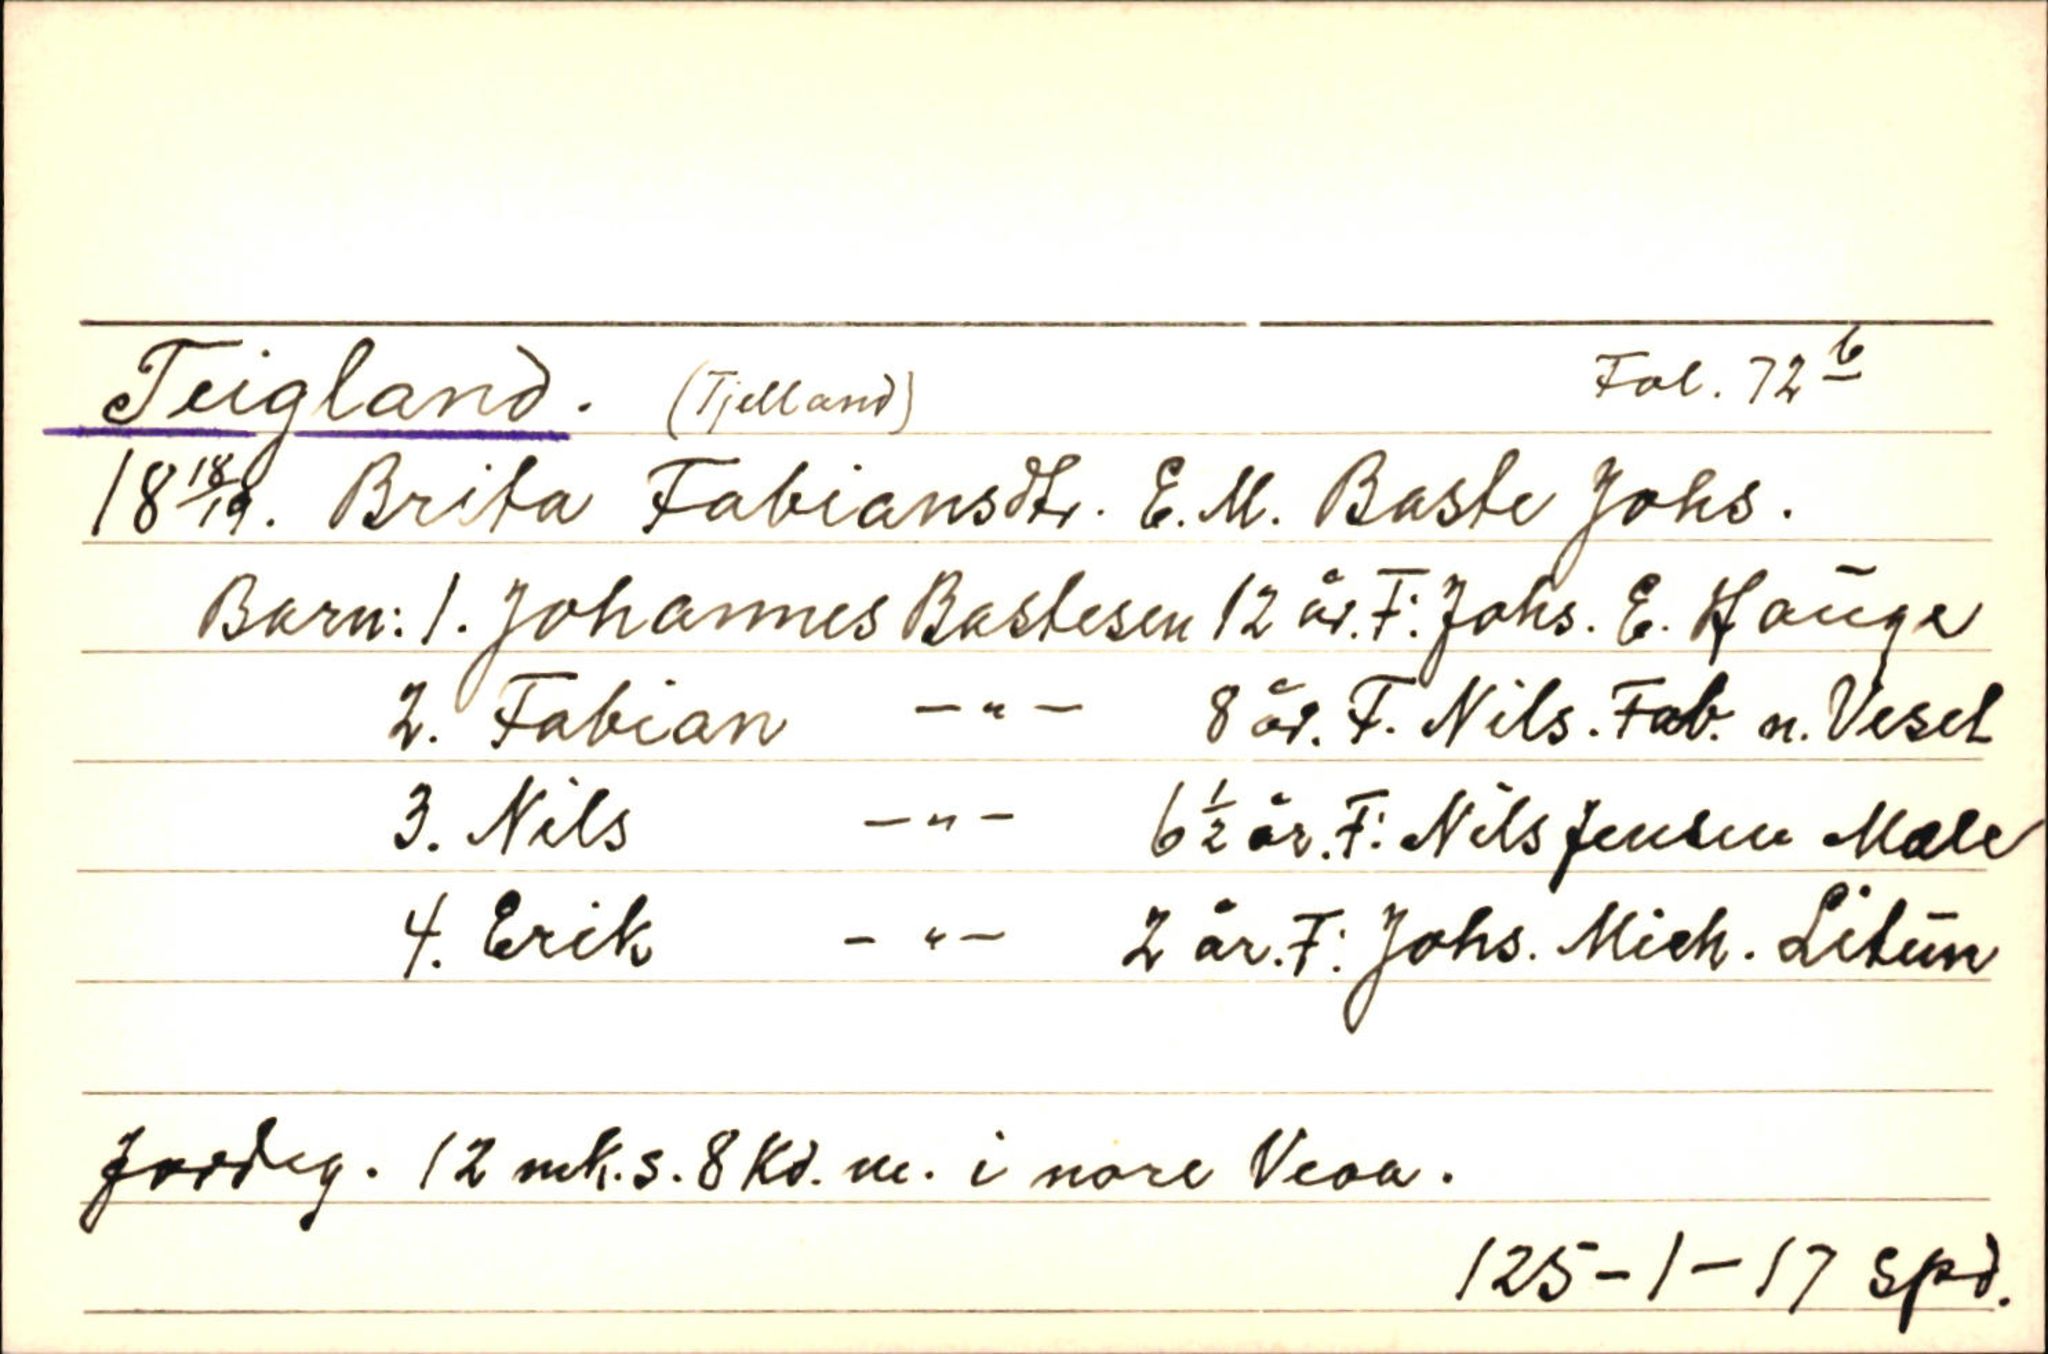 Teigland. (Tjelland) Fol. 72 b
18 18/19. Brita Fabiansdtr. E.M. Baste Johs.
Barn: 1. Johannes Bastesen 12 år. F: Johs. E. Hauge
2. Fabian -"- 8 år. F. Nils. Fab. n. Vesel
3. Nils -"- 6 1/2 år. F: Nils Jensen Mæle
4. Erik -"- 2 år. F: Johs. Mich. Litun
Jordeg. 12 mk. s. 8 Kd. m. i nore Veoa.
125-1-17 spd.